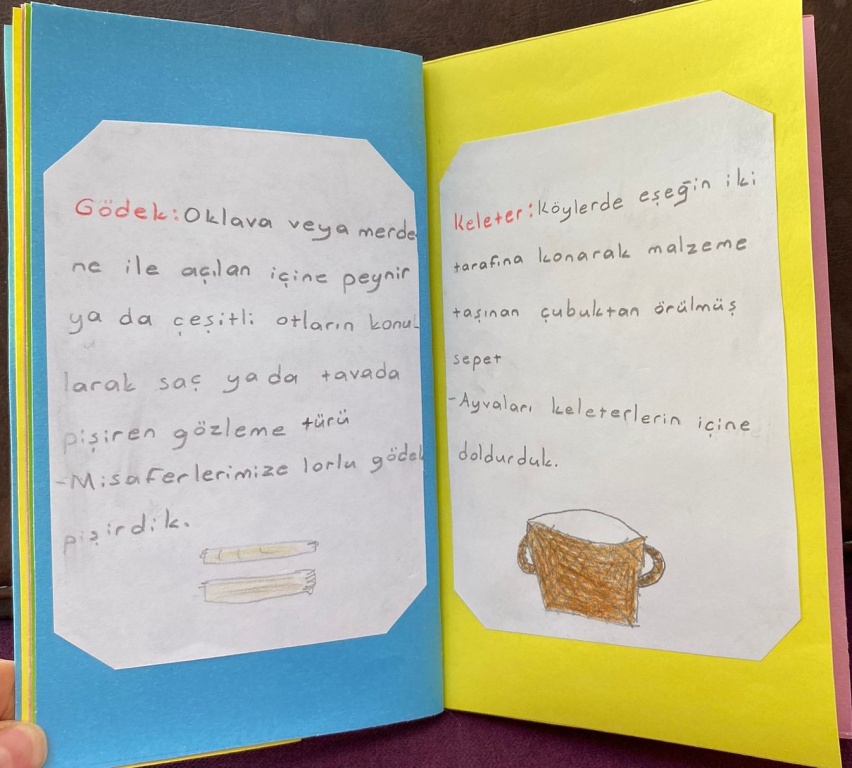 Gödek: Oklava veya merde
ne ile açılan içine peynir
ya da çeşitli otların konu-
larak saç ya da tavada
pişiren gözleme türü
-Misaferlerimize lorlu gödek
pişirdik.
Keleter: Köylerde eşeğin iki
tarafına konarak malzeme
taşınan çubuktan örülmüş
sepet
-Ayvaları keleterlerin içine
doldurduk.